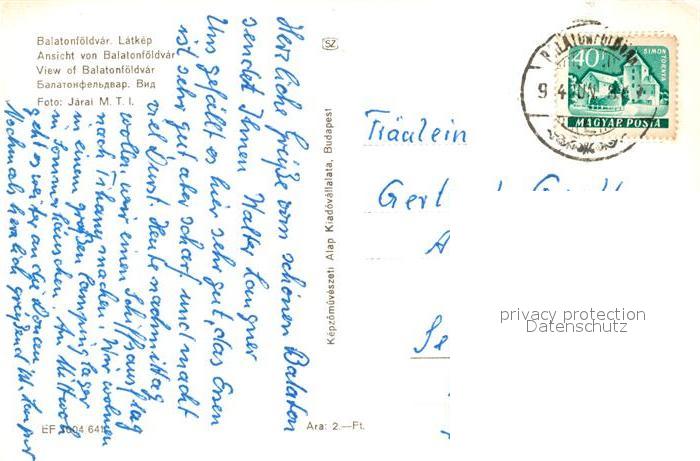 Balatonföldvár. Látkép
Ansicht von Balatonföldvár
View of Balatonföldvár
Балатонфельдвар. Вид
Foto: Járai M. T. I.
Herzliche Grüße vom schönen Balaton
sendet Ihnen Walter Langner
Uns gefällt es hier sehr gut, das Essen
ist sehr gut aber scharf und macht
viel Durst. Heute nachmittag
wollen wir einen Schiffsausflag
nach Tihany machen. Wir wohnen
in einem großen Campinglager
in Sommerhäuschen. Am Mittwoch
geht es weiter an die Donau.
Nochmals herzlich grüßend W. Langner
EF 3004 641
Ara: 2.—Ft.
SZ
Képzőművészeti Alap Kiadóvállalata, Budapest
Fräulein
BALATONFÖLDVÁR
40
SIMON
TORNYA
MAGYAR POSTA
privacy protection
Datenschutz